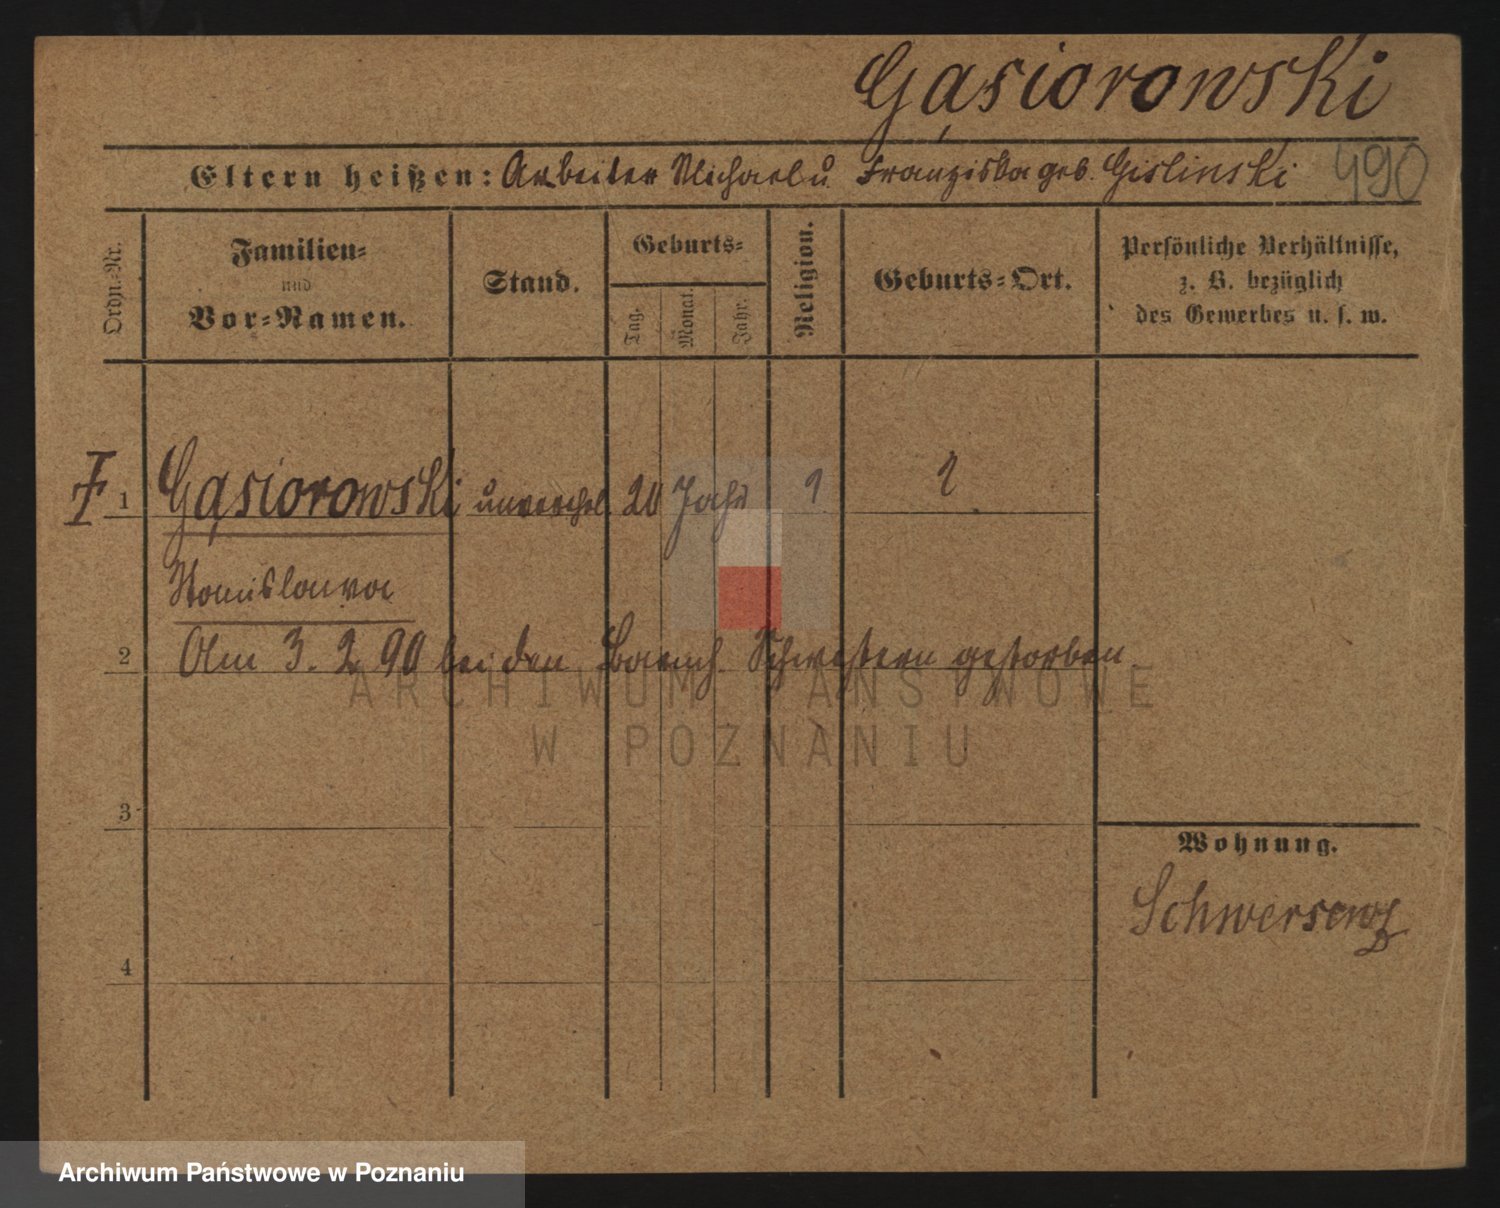 Gąsiorowski
Eltern heißen: Arbeiter Michael u Franziska geb. Gislinski 490
Ordn.-Nr. Familien- und Vor-Namen. Stand. Geburts- Tag. Monat. Jahr. Religion. Geburts-Ort. Persönliche Verhältnisse, z. B. bezüglich des Gewerbes u. s. w.
1 Gąsiorowski unverehel. 20 Jahr ? ?
Stanislawa
2 Am 3. 2. 90 bei den Barmh. Schwestern gestorben
ARCHIWUM PAŃSTWOWE
W POZNANIU
3
Wohnung.
Schwersenz
4
Archiwum Państwowe w Poznaniu